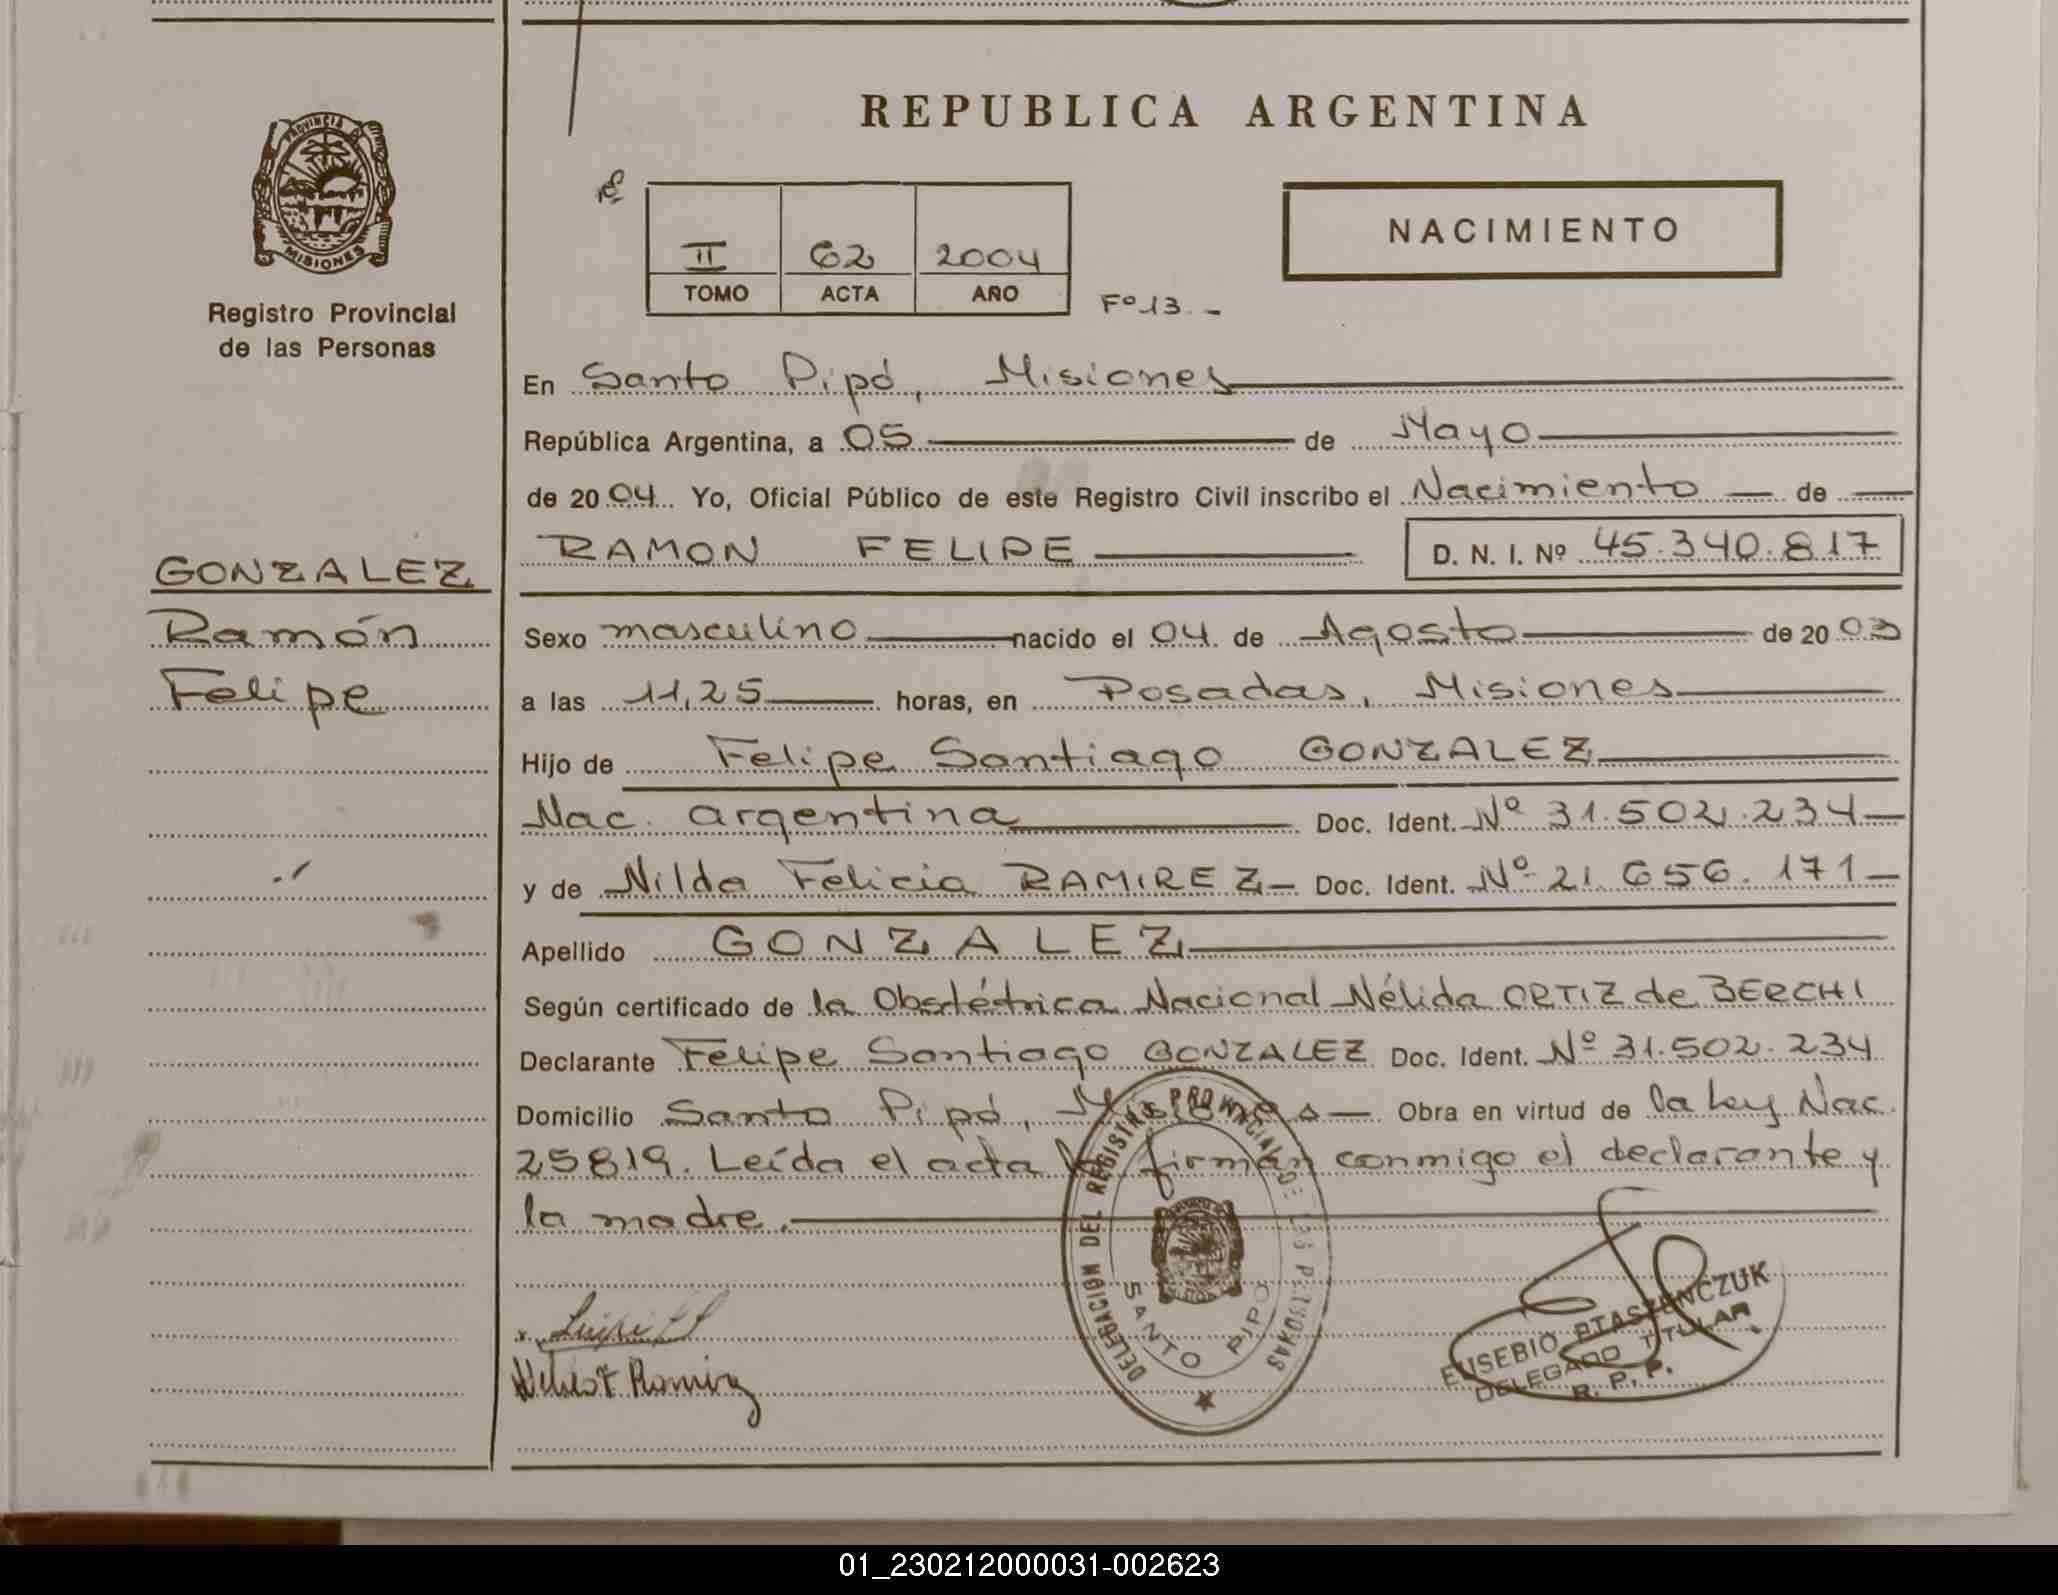 REPUBLICA ARGENTINA
PROVINCIA DE
MISIONES
Registro Provincial
de las Personas
II 62 2004
TOMO ACTA AÑO
Fº 13.-
NACIMIENTO
GONZALEZ
Ramón
Felipe
En Santo Pipó, Misiones
República Argentina, a 05 de Mayo
de 2004 Yo, Oficial Público de este Registro Civil inscribo el Nacimiento — de —
RAMON FELIPE — D. N. I. Nº 45.340.817
Sexo masculino — nacido el 04 de Agosto — de 2003
a las 11,25 — horas, en Posadas, Misiones
Hijo de Felipe Santiago GONZALEZ
Nac. argentina — Doc. Ident. Nº 31.502.234—
y de Nilda Felicia RAMIREZ— Doc. Ident. Nº 21.656.171—
Apellido GONZALEZ
Según certificado de la Obstétrica Nacional Nélida ORTIZ de BERCHI
Declarante Felipe Santiago GONZALEZ Doc. Ident. Nº 31.502.234
Domicilio Santo Pipó, Misiones— Obra en virtud de la Ley Nac.
25819. Leída el acta la firman conmigo el declarante y
la madre.
DELEGACION DEL REGISTRO PROVINCIAL DE LAS PERSONAS
SANTO PIPO
EUSEBIO PTASZENCZUK
DELEGADO TITULAR
R. P. P.
01_230212000031-002623